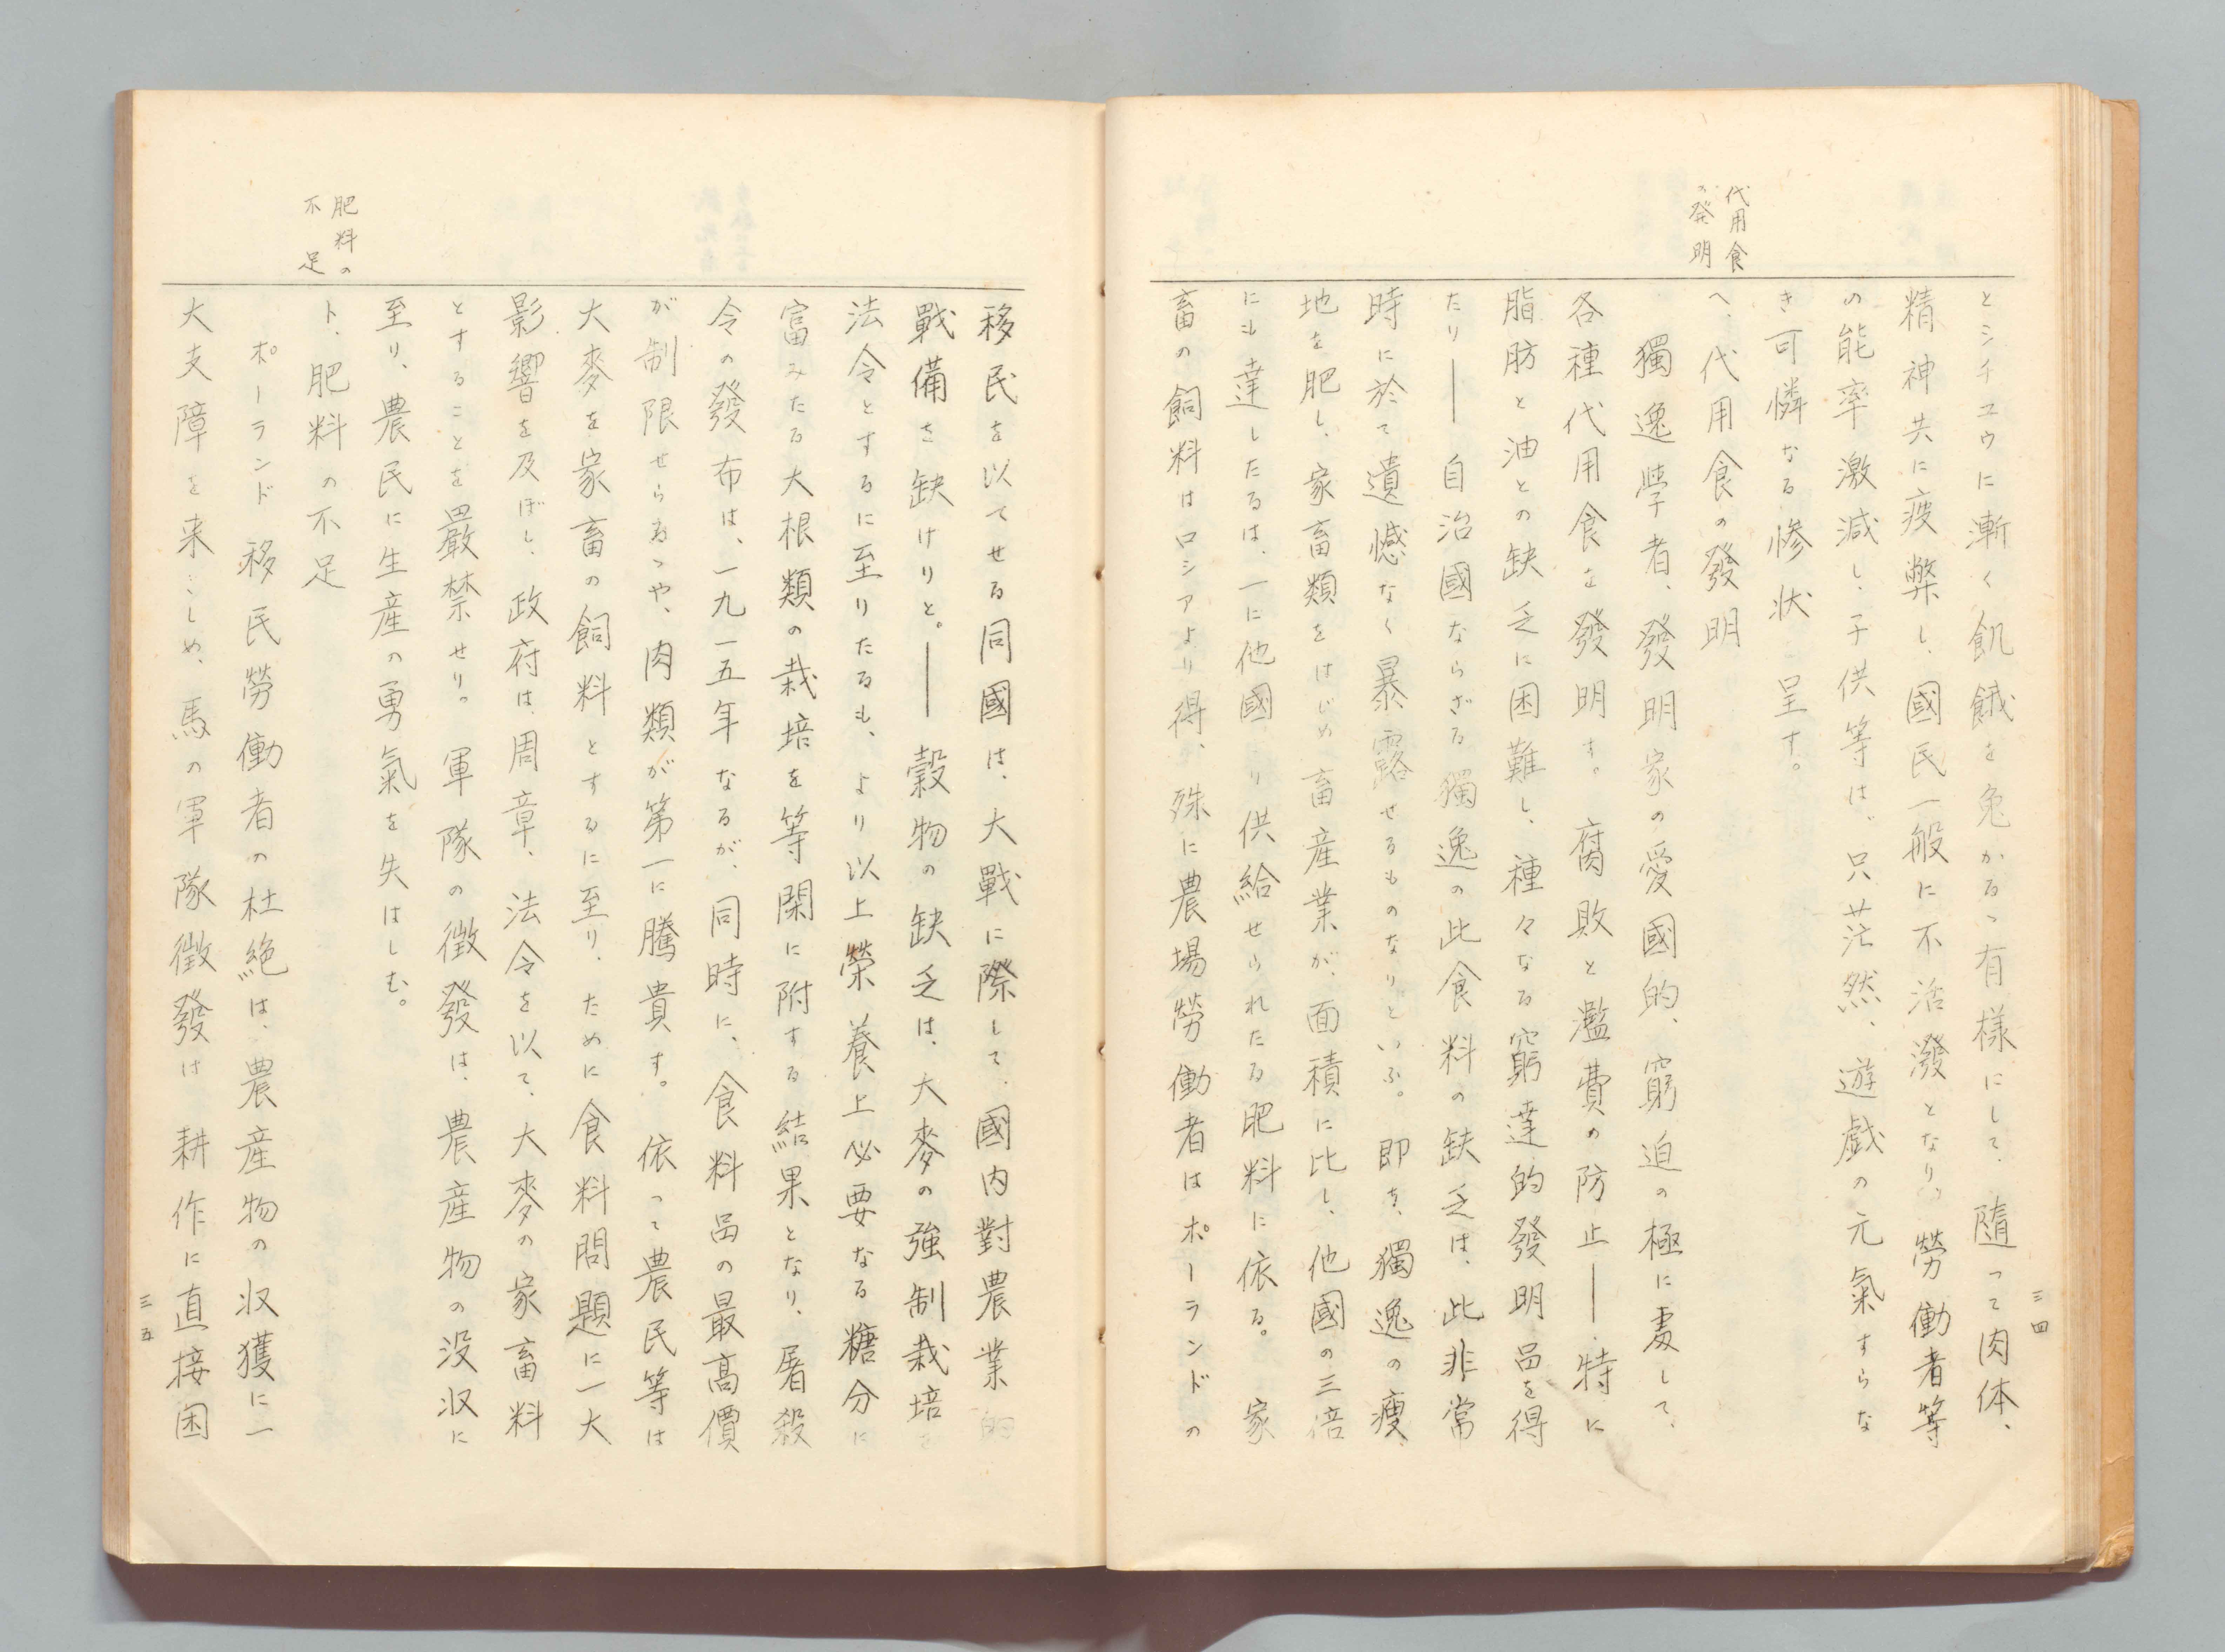 三四
とシチユウに漸く飢餓を免かるゝ有樣にして、隨って肉体、
精神共に疲弊し、國民一般に不活潑となり、勞働者等
の能率激減し、子供等は、只茫然、遊戯の元氣すらな
き可憐なる惨状呈す。
代用食
の発明
ヘ、代用食の發明
獨逸學者、發明家の愛國的、窮迫の極に處して、
各種代用食を發明す。腐敗と濫費の防止――特に
脂肪と油との缺乏に困難し、種々なる窮達的發明品を得
たり――自治國ならざる獨逸の此食料の缺乏は、此非常
時に於て遺憾なく暴露せるものなりといふ。即ち、獨逸の瘦
地を肥し、家畜類をはじめ畜産業が、面積に比し、他國の三倍
にも達したるは、一に他國り供給せられたる肥料に依る。家
畜の飼料はロシアより得、殊に農場勞働者はポーランドの
移民を以てせる同國は、大戰に際して、國内對農業的
戰備を缺けりと。――穀物の缺乏は、大麥の強制栽培を
法令とするに至りたるも、より以上榮養上必要なる糖分に
富みたる大根類の栽培を等閑に附する結果となり、屠殺
令の發布は、一九一五年なるが、同時に、食料品の最高價
が制限せらるゝや、肉類が第一に騰貴す。依って農民等は
大麥を家畜の飼料とするに至り、ために食料問題に一大
影響を及ぼし、政府は、周章、法令を以て、大麥の家畜料
とすることを嚴禁せり。軍隊の徴發は、農産物の没収に
至り、農民に生産の勇氣を失はしむ。
肥料の
不足
ト、肥料の不足
ポーランド移民勞働者の杜絶は、農産物の収獲に一
大支障を来しめ、馬の軍隊徴發は耕作に直接困
三五